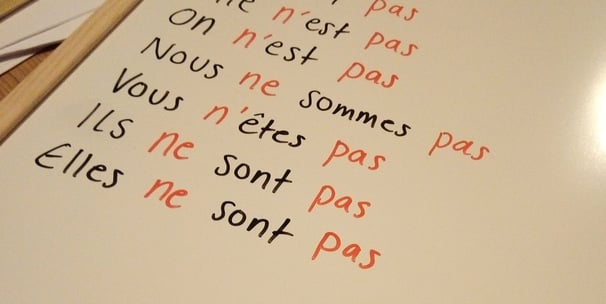 pas
n'est pas
On n'est pas
Nous ne sommes pas
Vous n'êtes pas
Ils ne sont pas
Elles ne sont pas